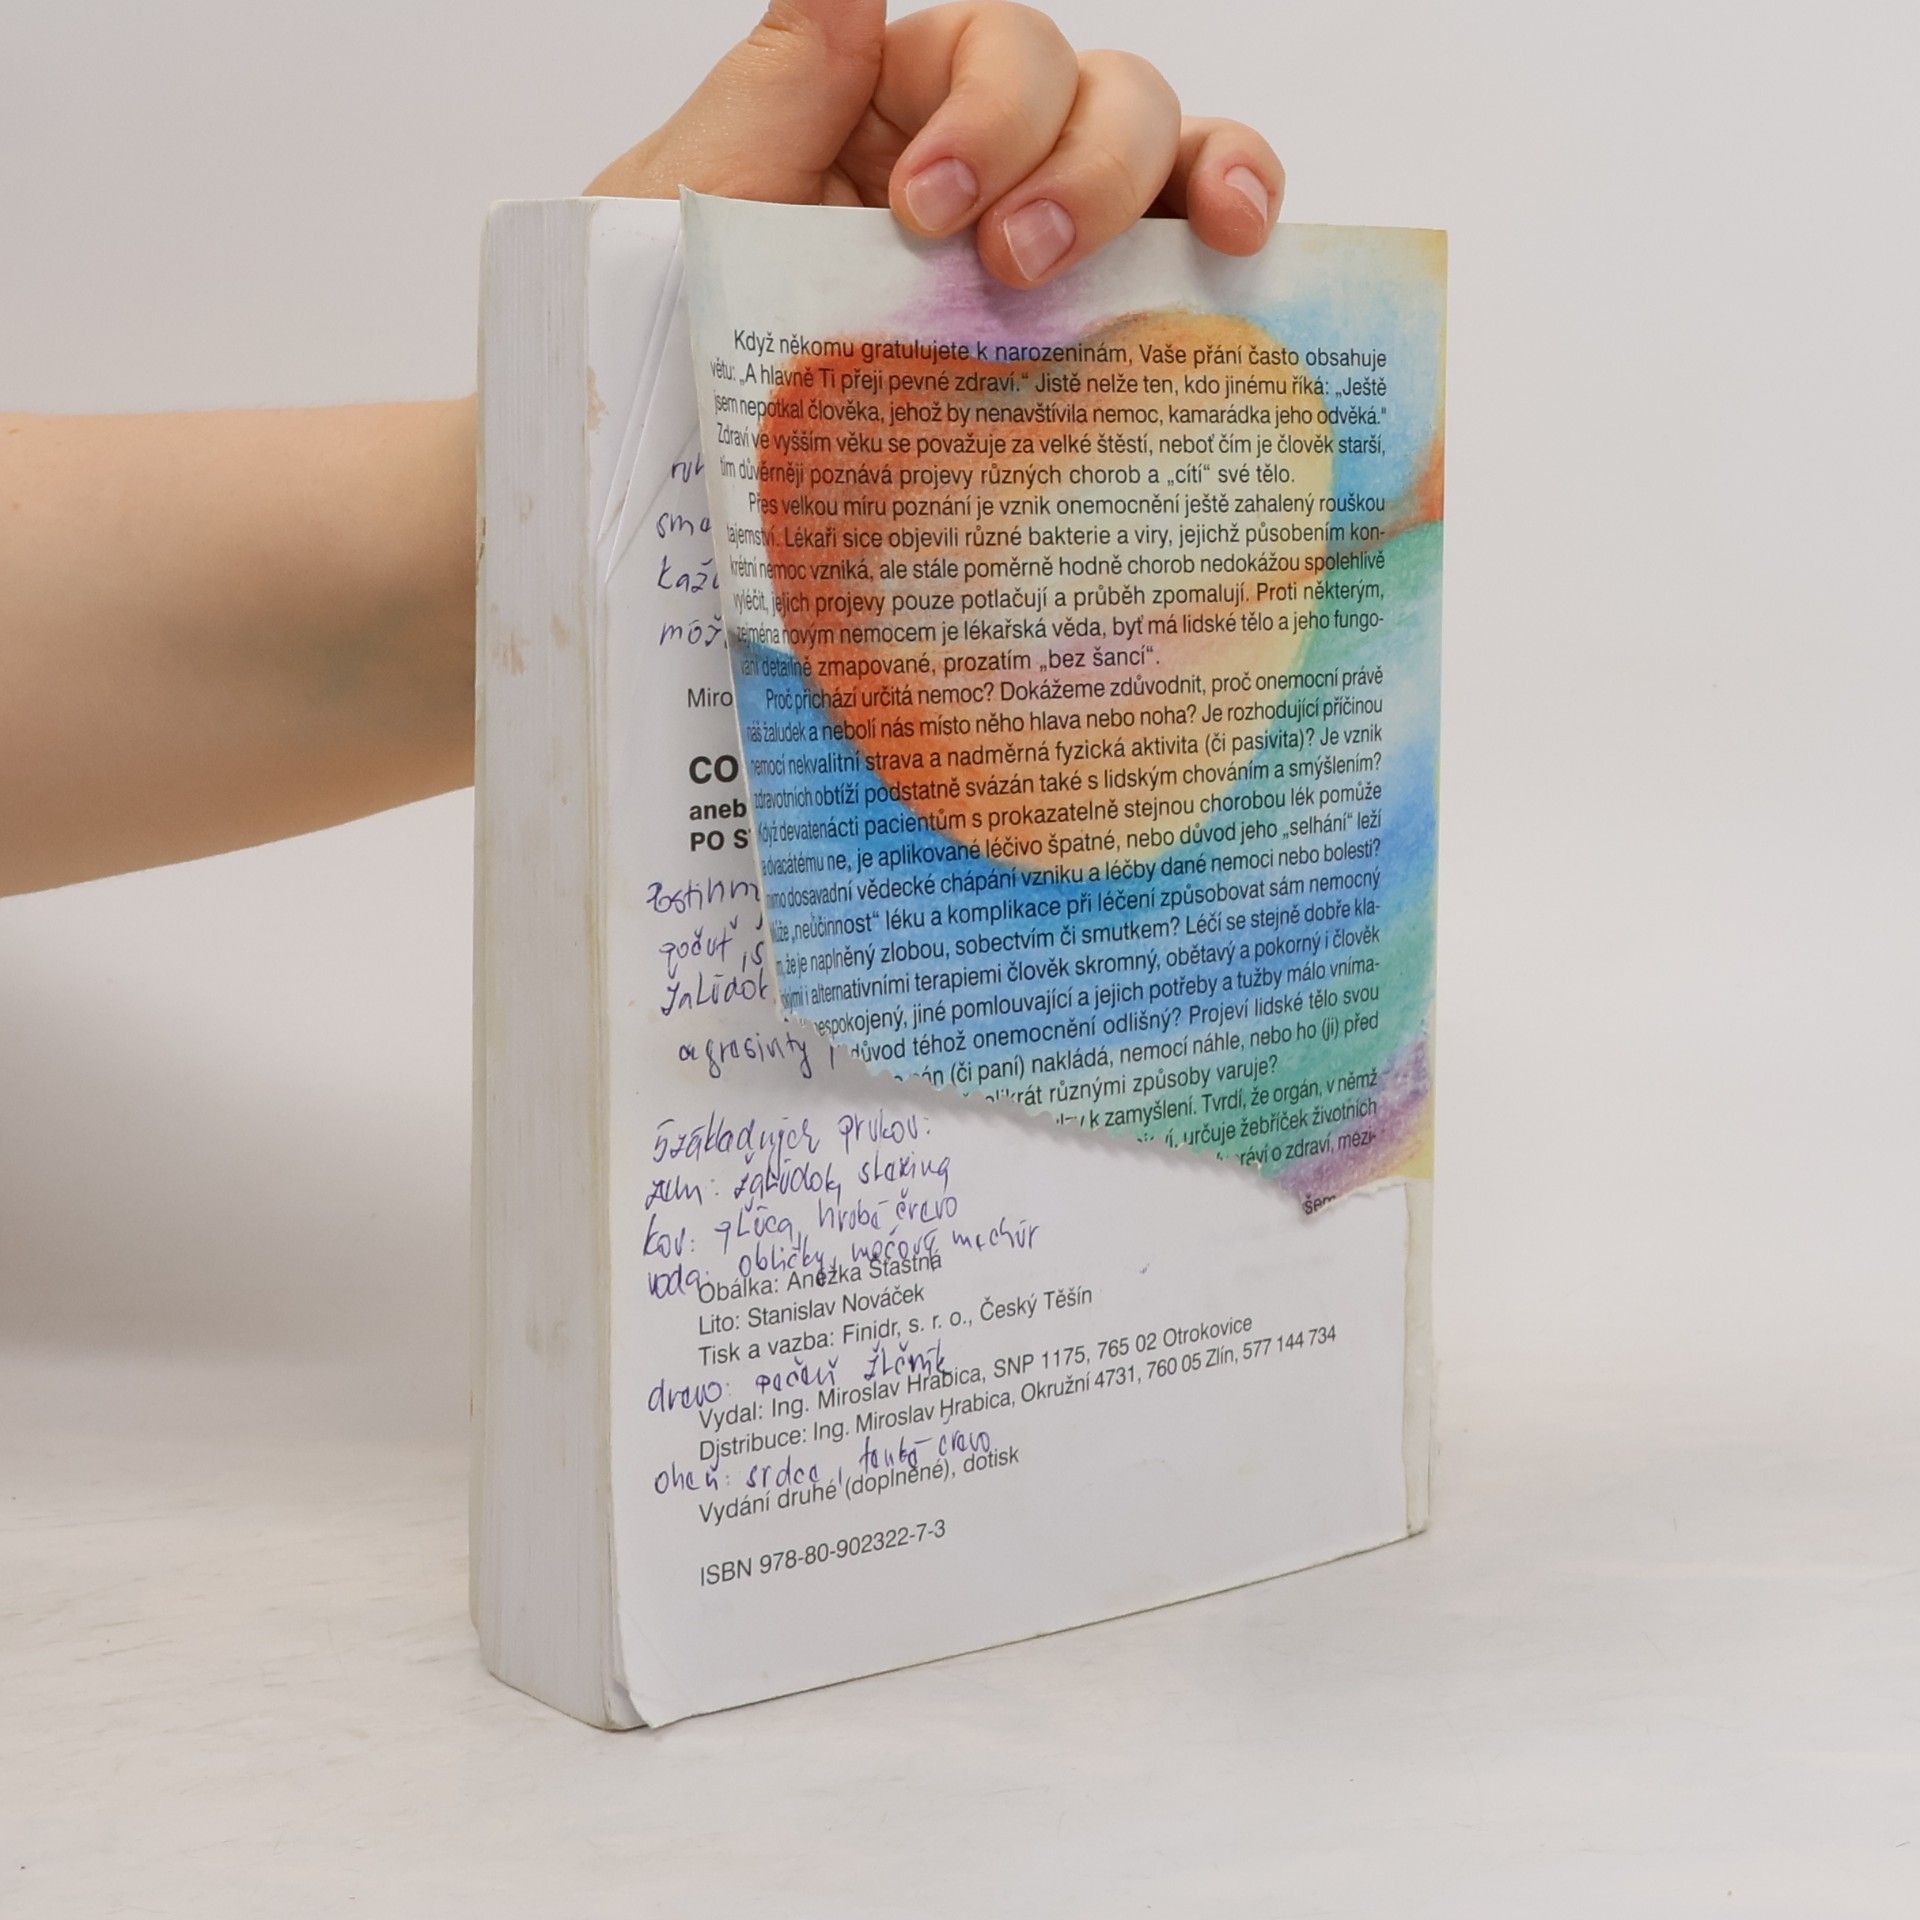 Když někomu gratulujete k narozeninám, Vaše přání často obsahuje
větu: „A hlavně Ti přeji pevné zdraví.“ Jistě nelže ten, kdo jinému říká: „Ještě
jsem nepotkal člověka, jehož by nenavštívila nemoc, kamarádka jeho odvěká."
Zdraví ve vyšším věku se považuje za velké štěstí, neboť čím je člověk starší,
tím důvěrněji poznává projevy různých chorob a „cítí“ své tělo.
Přes velkou míru poznání je vznik onemocnění ještě zahalený rouškou
tajemství. Lékaři sice objevili různé bakterie a viry, jejichž působením kon-
krétní nemoc vzniká, ale stále poměrně hodně chorob nedokážou spolehlivě
vyléčit, jejich projevy pouze potlačují a průběh zpomalují. Proti některým,
zejména novým nemocem je lékařská věda, byť má lidské tělo a jeho fungo-
vání detailně zmapované, prozatím „bez šancí“.
Proč přichází určitá nemoc? Dokážeme zdůvodnit, proč onemocní právě
náš žaludek a nebolí nás místo něho hlava nebo noha? Je rozhodující příčinou
nemocí nekvalitní strava a nadměrná fyzická aktivita (či pasivita)? Je vznik
zdravotních obtíží podstatně svázán také s lidským chováním a smýšlením?
Když devatenácti pacientům s prokazatelně stejnou chorobou lék pomůže
a dvacátému ne, je aplikované léčivo špatné, nebo důvod jeho „selhání“ leží
mimo dosavadní vědecké chápání vzniku a léčby dané nemoci nebo bolesti?
Může „neúčinnost“ léku a komplikace při léčení způsobovat sám nemocný
že je naplněný zlobou, sobectvím či smutkem? Léčí se stejně dobře kla-
i alternativními terapiemi člověk skromný, obětavý a pokorný i člověk
nespokojený, jiné pomlouvající a jejich potřeby a tužby málo vníma-
důvod téhož onemocnění odlišný? Projeví lidské tělo svou
pán (či paní) nakládá, nemocí náhle, nebo ho (ji) před
krát různými způsoby varuje?
k zamyšlení. Tvrdí, že orgán, v němž
určuje žebříček životních
práví o zdraví, mezi-
šem
sma
každ
môž
Miro
CO
aneb
PO S
Postihn
počuť, s
žalúdok
agresivity
5 základných prvkov:
zem: žalúdok, slezina
kov: pľúca, hrubé črevo
voda: obličky, močový mechúr
Obálka: Anežka Šťastná
Lito: Stanislav Nováček
Tisk a vazba: Finidr, s. r. o., Český Těšín
drevo: pečeň žlčník
Vydal: Ing. Miroslav Hrabica, SNP 1175, 765 02 Otrokovice
Distribuce: Ing. Miroslav Hrabica, Okružní 4731, 760 05 Zlín, 577 144 734
oheň: srdce, tenké črevo
Vydání druhé (doplněné), dotisk
ISBN 978-80-902322-7-3